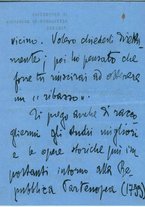 vicino. Volevo chiederti diretta-
mente; poi ho pensato che
forse tu riusciresti ad ottenere
un "ribasso".
Ti prego anche di racco-
gliermi gli studi migliori
e le opere storiche più im-
portanti intorno alla Re-
pubblica Partenopea (1799)